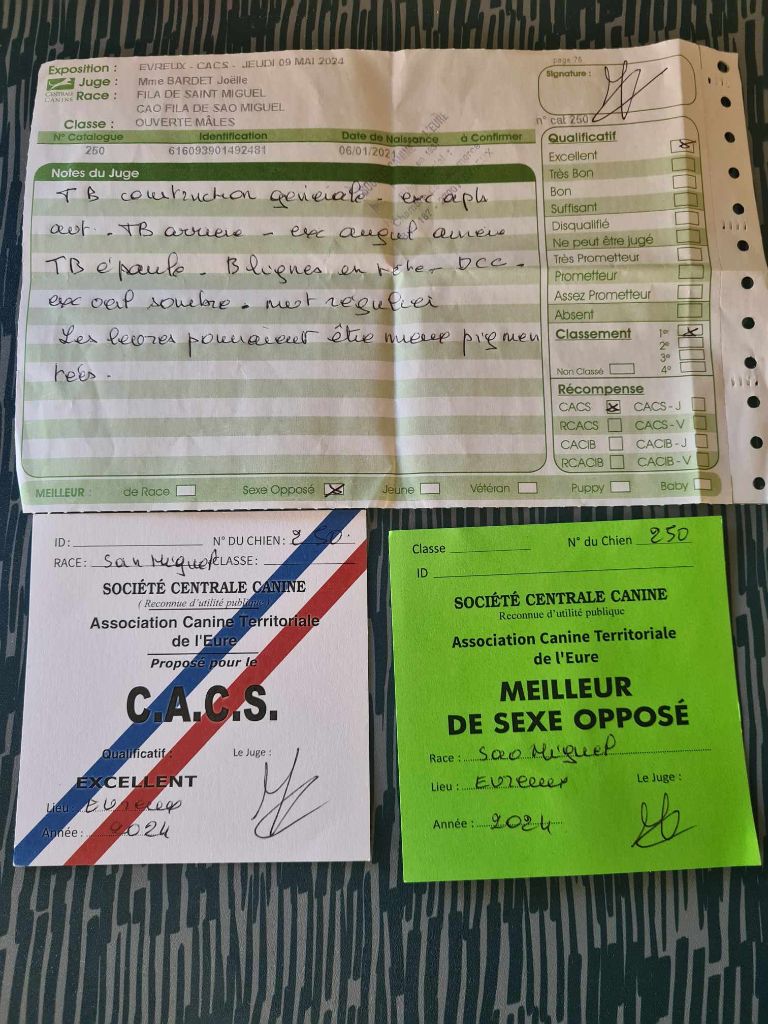 Exposition : EVREUX - CACS - JEUDI 09 MAI 2024
page 76
CENTRALE CANINE
Juge : Mme BARDET Joëlle
Signature :
Race : FILA DE SAINT MIGUEL
CAO FILA DE SAO MIGUEL
Classe : OUVERTE MÂLES
n° cat 250
N° Catalogue Identification Date de Naissance à Confirmer
250 616093901492481 06/01/2021
Notes du Juge
TB construction générale - exc aplb
avt - TB arrière - exc angul arrière
TB épaule - B lignes en tête - DCC -
exc oeil sombre - mvt régulier
Les lèvres pourraient être mieux pigmen
tées.
Qualificatif
Excellent
Très Bon
Bon
Suffisant
Disqualifié
Ne peut être jugé
Très Prometteur
Prometteur
Assez Prometteur
Absent
Classement 1er
2e
3e
Non Classé 4e
Récompense
CACS CACS - J
RCACS CACS - V
CACIB CACIB - J
RCACIB CACIB - V
MEILLEUR : de Race Sexe Opposé Jeune Vétéran Puppy Baby
ID : N° DU CHIEN : 250
RACE : San Miguel CLASSE :
SOCIÉTÉ CENTRALE CANINE
( Reconnue d'utilité publique )
Association Canine Territoriale
de l'Eure
Proposé pour le
C.A.C.S.
Qualificatif : Le Juge :
EXCELLENT
Lieu : Evreux
Année : 2024
Classe N° du Chien 250
ID
SOCIÉTÉ CENTRALE CANINE
Reconnue d'utilité publique
Association Canine Territoriale
de l'Eure
MEILLEUR
DE SEXE OPPOSÉ
Race : Sao Miguel
Lieu : Evreux Le Juge :
Année : 2024